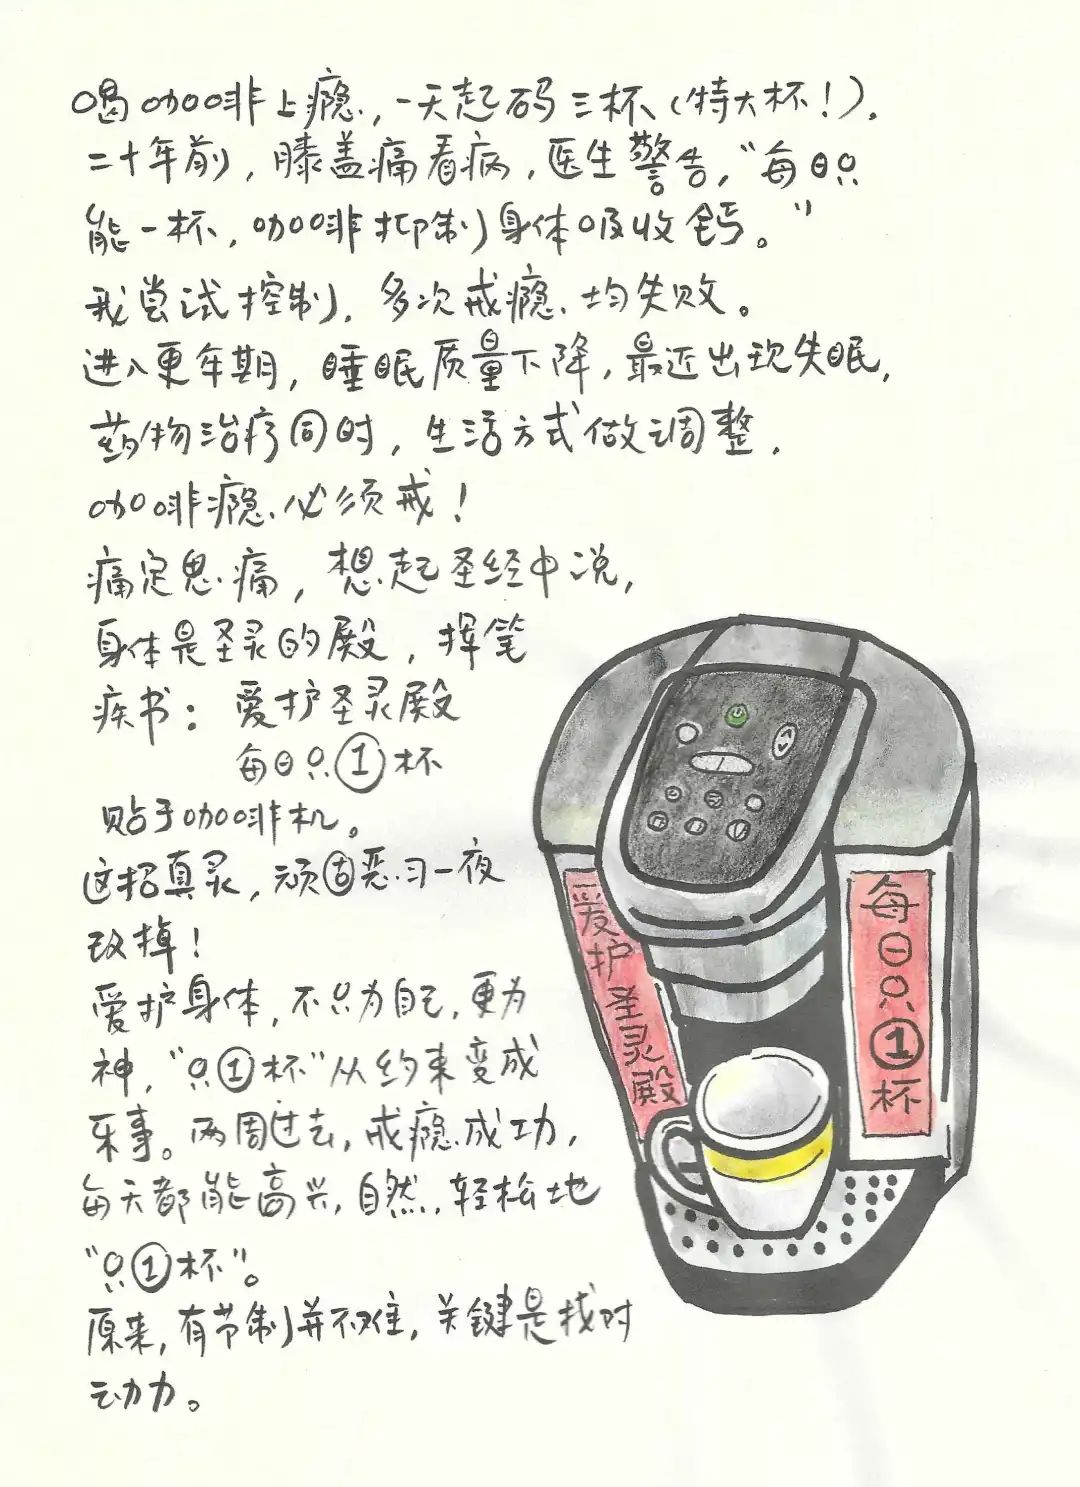 喝咖啡上瘾，一天起码三杯（特大杯！），
二十年前，膝盖痛看病，医生警告，“每日只
能一杯，咖啡抑制身体吸收钙。”
我尝试控制，多次戒瘾，均失败。
进入更年期，睡眠质量下降，最近出现失眠，
药物治疗同时，生活方式做调整，
咖啡瘾必须戒！
痛定思痛，想起圣经中说，
身体是圣灵的殿，挥笔
疾书：爱护圣灵殿
每日只①杯
贴于咖啡机。
这招真灵，顽固恶习一夜
改掉！
爱护身体，不只为自己，更为
神，“只①杯”从约束变成
乐事。两周过去，戒瘾成功，
每天都能高兴，自然，轻松地
“只①杯”。
原来，有节制并不难，关键是找对
动力。
爱护圣灵殿
每日只①杯